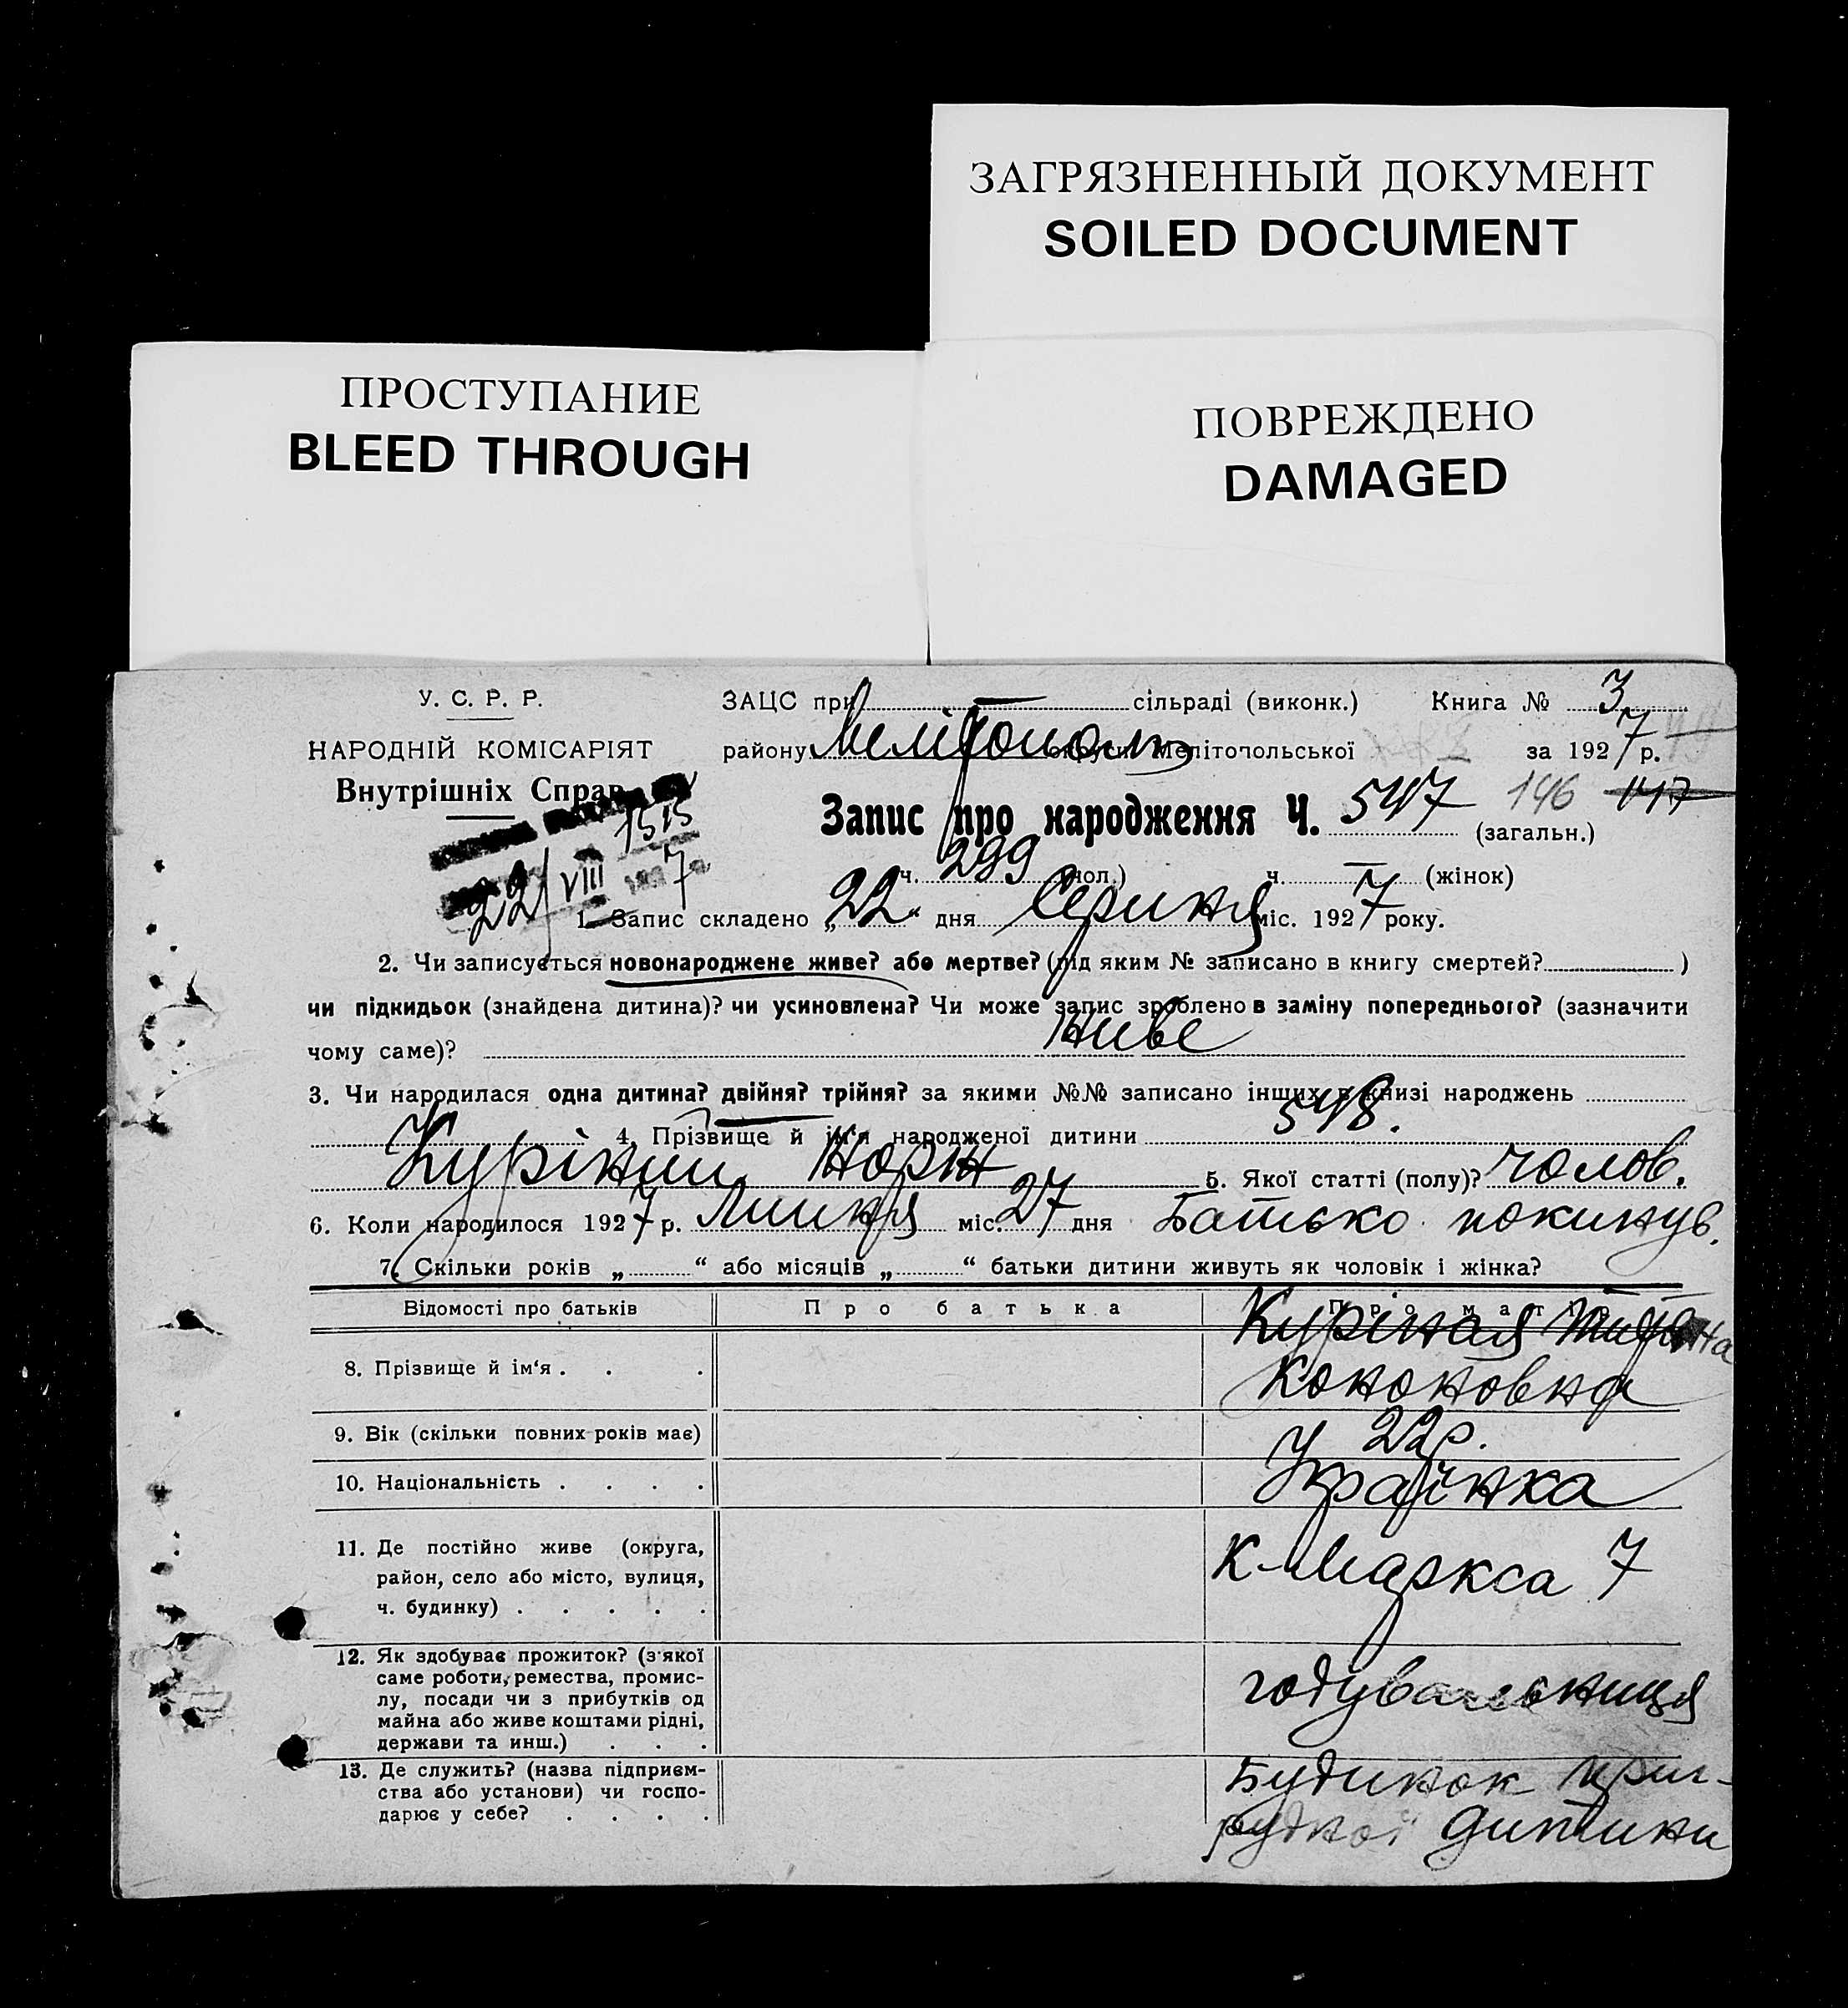 ЗАГРЯЗНЕННЫЙ ДОКУМЕНТ
SOILED DOCUMENT
ПРОСТУПАНИЕ
BLEED THROUGH
ПОВРЕЖДЕНО
DAMAGED
У. С. Р. Р.
НАРОДНІЙ КОМІСАРІЯТ
Внутрішніх Справ
1515
22/VIII 1927
ЗАЦС при — сільраді (виконк.) Книга № 3
району Мелітополь округи Мелітопольської за 1927 р.
Запис про народження Ч. 547 146 147 (загальн.)
ч. 299 (чол.) ч. — (жінок)
1. Запис складено „22“ дня Серпня міс. 1927 року.
2. Чи записується новонароджене живе? або мертве? (під яким № записано в книгу смертей? )
чи підкидьок (знайдена дитина)? чи усиновлена? Чи може запис зроблено в заміну попереднього? (зазначити
чому саме)? живе
3. Чи народилася одна дитина? двійня? трійня? за якими №№ записано інших в книзі народжень
548.
4. Прізвище й ім'я народженої дитини
Курінии 5. Якої статті (полу)? чолов.
6. Коли народилося 1927 р. Липня міс. 27 дня Батько покинув.
7. Скільки років „ “ або місяців „ “ батьки дитини живуть як чоловік і жінка?
Відомості про батьків Про батька Про матір
8. Прізвище й ім'я . . . Куріная
Кононовна
9. Вік (скільки повних років має) 22р.
10. Національність . . . . Українка
11. Де постійно живе (округа,
район, село або місто, вулиця,
ч. будинку) . . . . . К-Маркса 7
12. Як здобуває прожиток? (з'якої
саме роботи, ремества, промис-
лу, посади чи з прибутків од
майна або живе коштами рідні,
держави та инш.) . . . годувальниця
13. Де служить? (назва підприєм-
ства або установи) чи госпо-
дарює у себе? . . . . Будинок
дитини